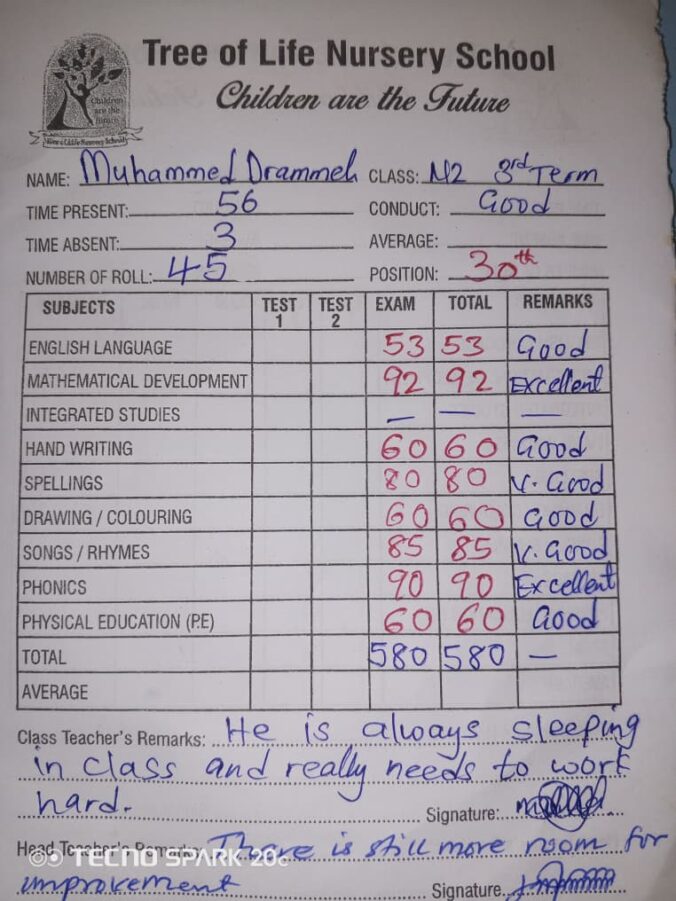 Tree of Life Nursery School
Children are the Future
Children are the Future
NAME: Muhammed Drammeh CLASS: N2 3rd Term
TIME PRESENT: 56 CONDUCT: Good
TIME ABSENT: 3 AVERAGE:
NUMBER OF ROLL: 45 POSITION: 30th
SUBJECTS TEST 1 TEST 2 EXAM TOTAL REMARKS
ENGLISH LANGUAGE 53 53 Good
MATHEMATICAL DEVELOPMENT 92 92 Excellent
INTEGRATED STUDIES — — —
HAND WRITING 60 60 Good
SPELLINGS 80 80 V. Good
DRAWING / COLOURING 60 60 Good
SONGS / RHYMES 85 85 V. Good
PHONICS 90 90 Excellent
PHYSICAL EDUCATION (P.E) 60 60 Good
TOTAL 580 580 —
AVERAGE
Class Teacher's Remarks: He is always sleeping
in class and really needs to work
hard. Signature:
Head Teacher's Remarks: There is still more room for
improvement Signature
TECNO SPARK 20c